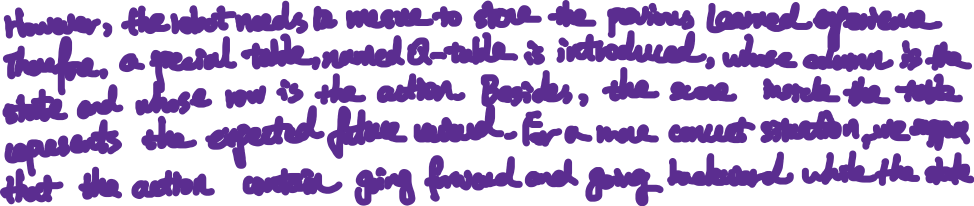 However, the robot needs to memorize to store the previous learned experience
Therefore, a special table, named Q-table is introduced, whose column is the
state and whose row is the action. Besides, the score inside the table
represents the expected future reward. For a more concrete situation, we assume
that the action contain going forward and going backward while the state